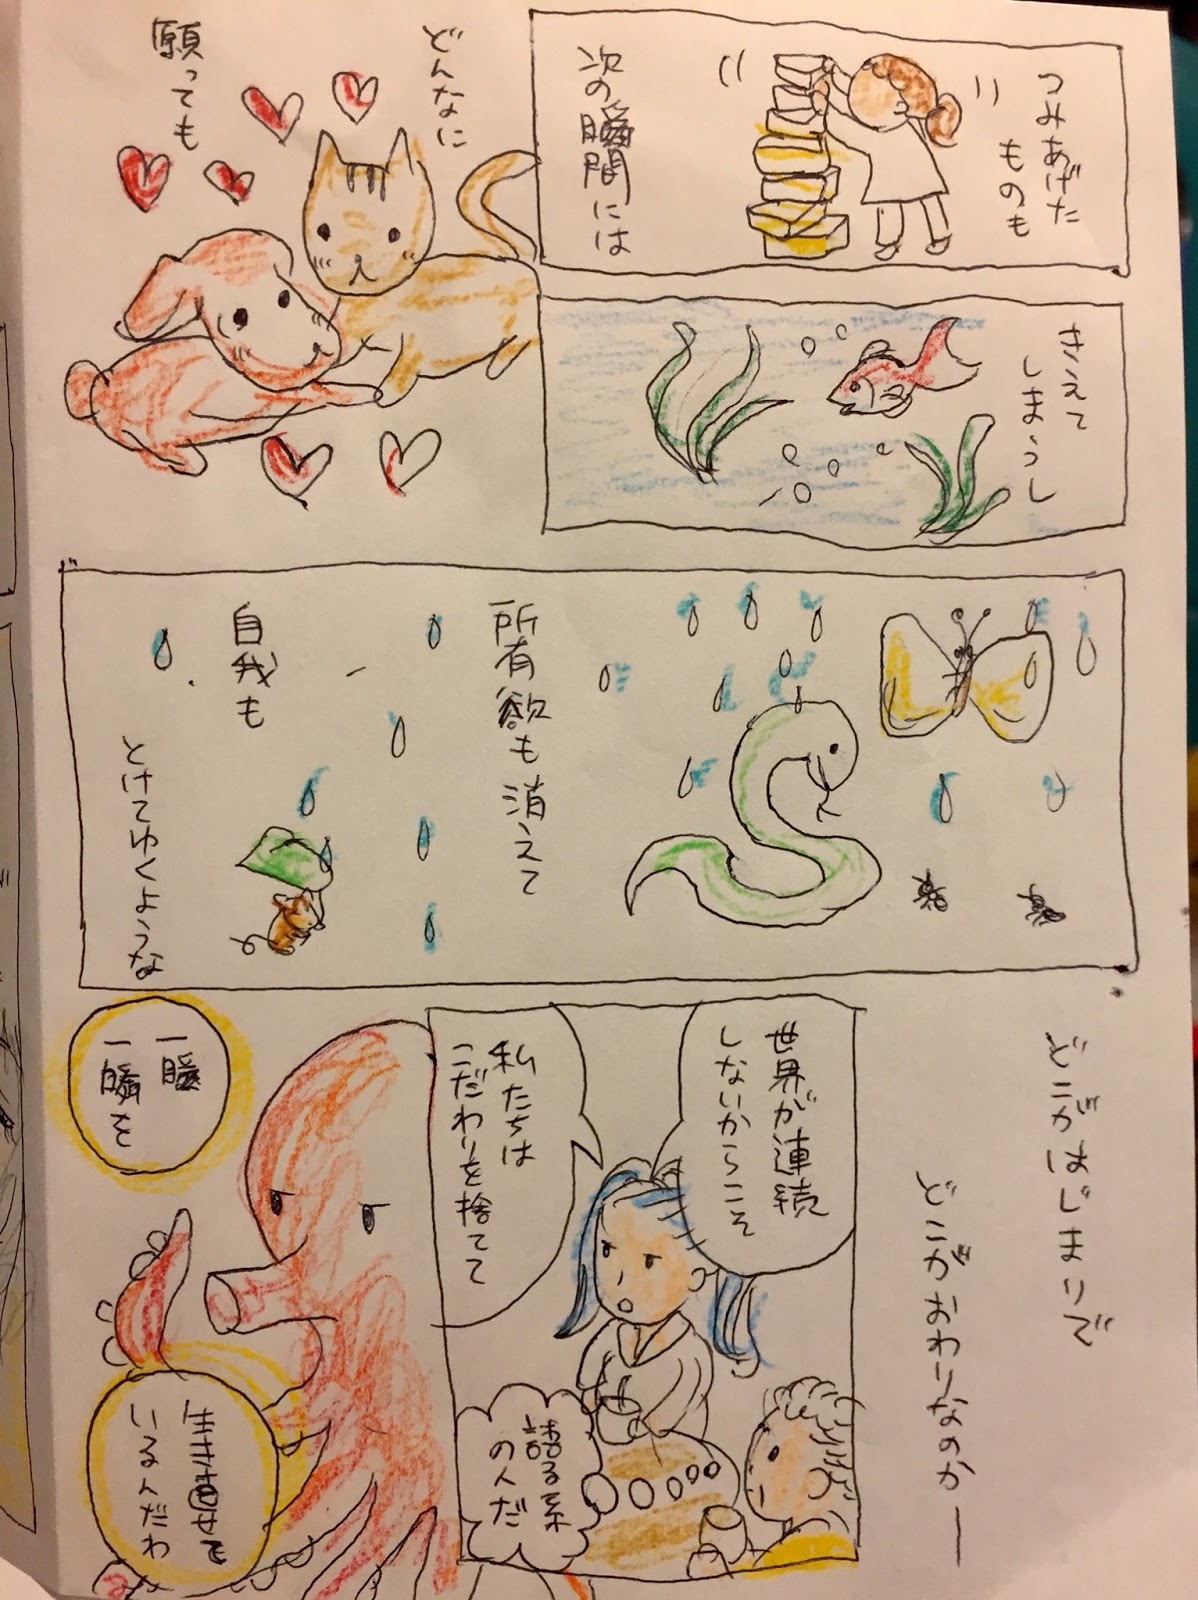 つみあげた
ものも
次の瞬間には
きえて
しまうし
どんなに
願っても
所有欲も消えて
自我も
とけてゆくような
どこがはじまりで
どこがおわりなのかー
世界が連続
しないからこそ
私たちは
こだわりを捨てて
語る系
の人だ
一瞬
一瞬を
生き直せて
いるんだわ